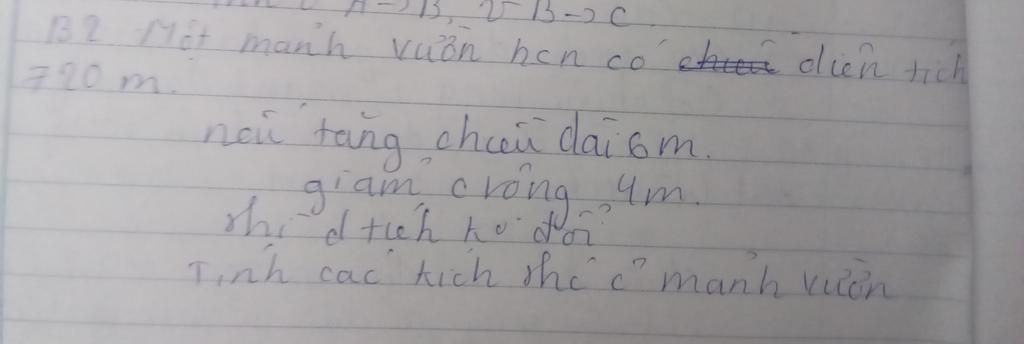 A → B, V B → C
B2 Một mảnh vườn hcn có diện tích
720 m.
nếu tăng chiều dài 6 m.
giảm c rộng 4m.
thì d tích ko đổi
Tính các kích thc c' mảnh vườn